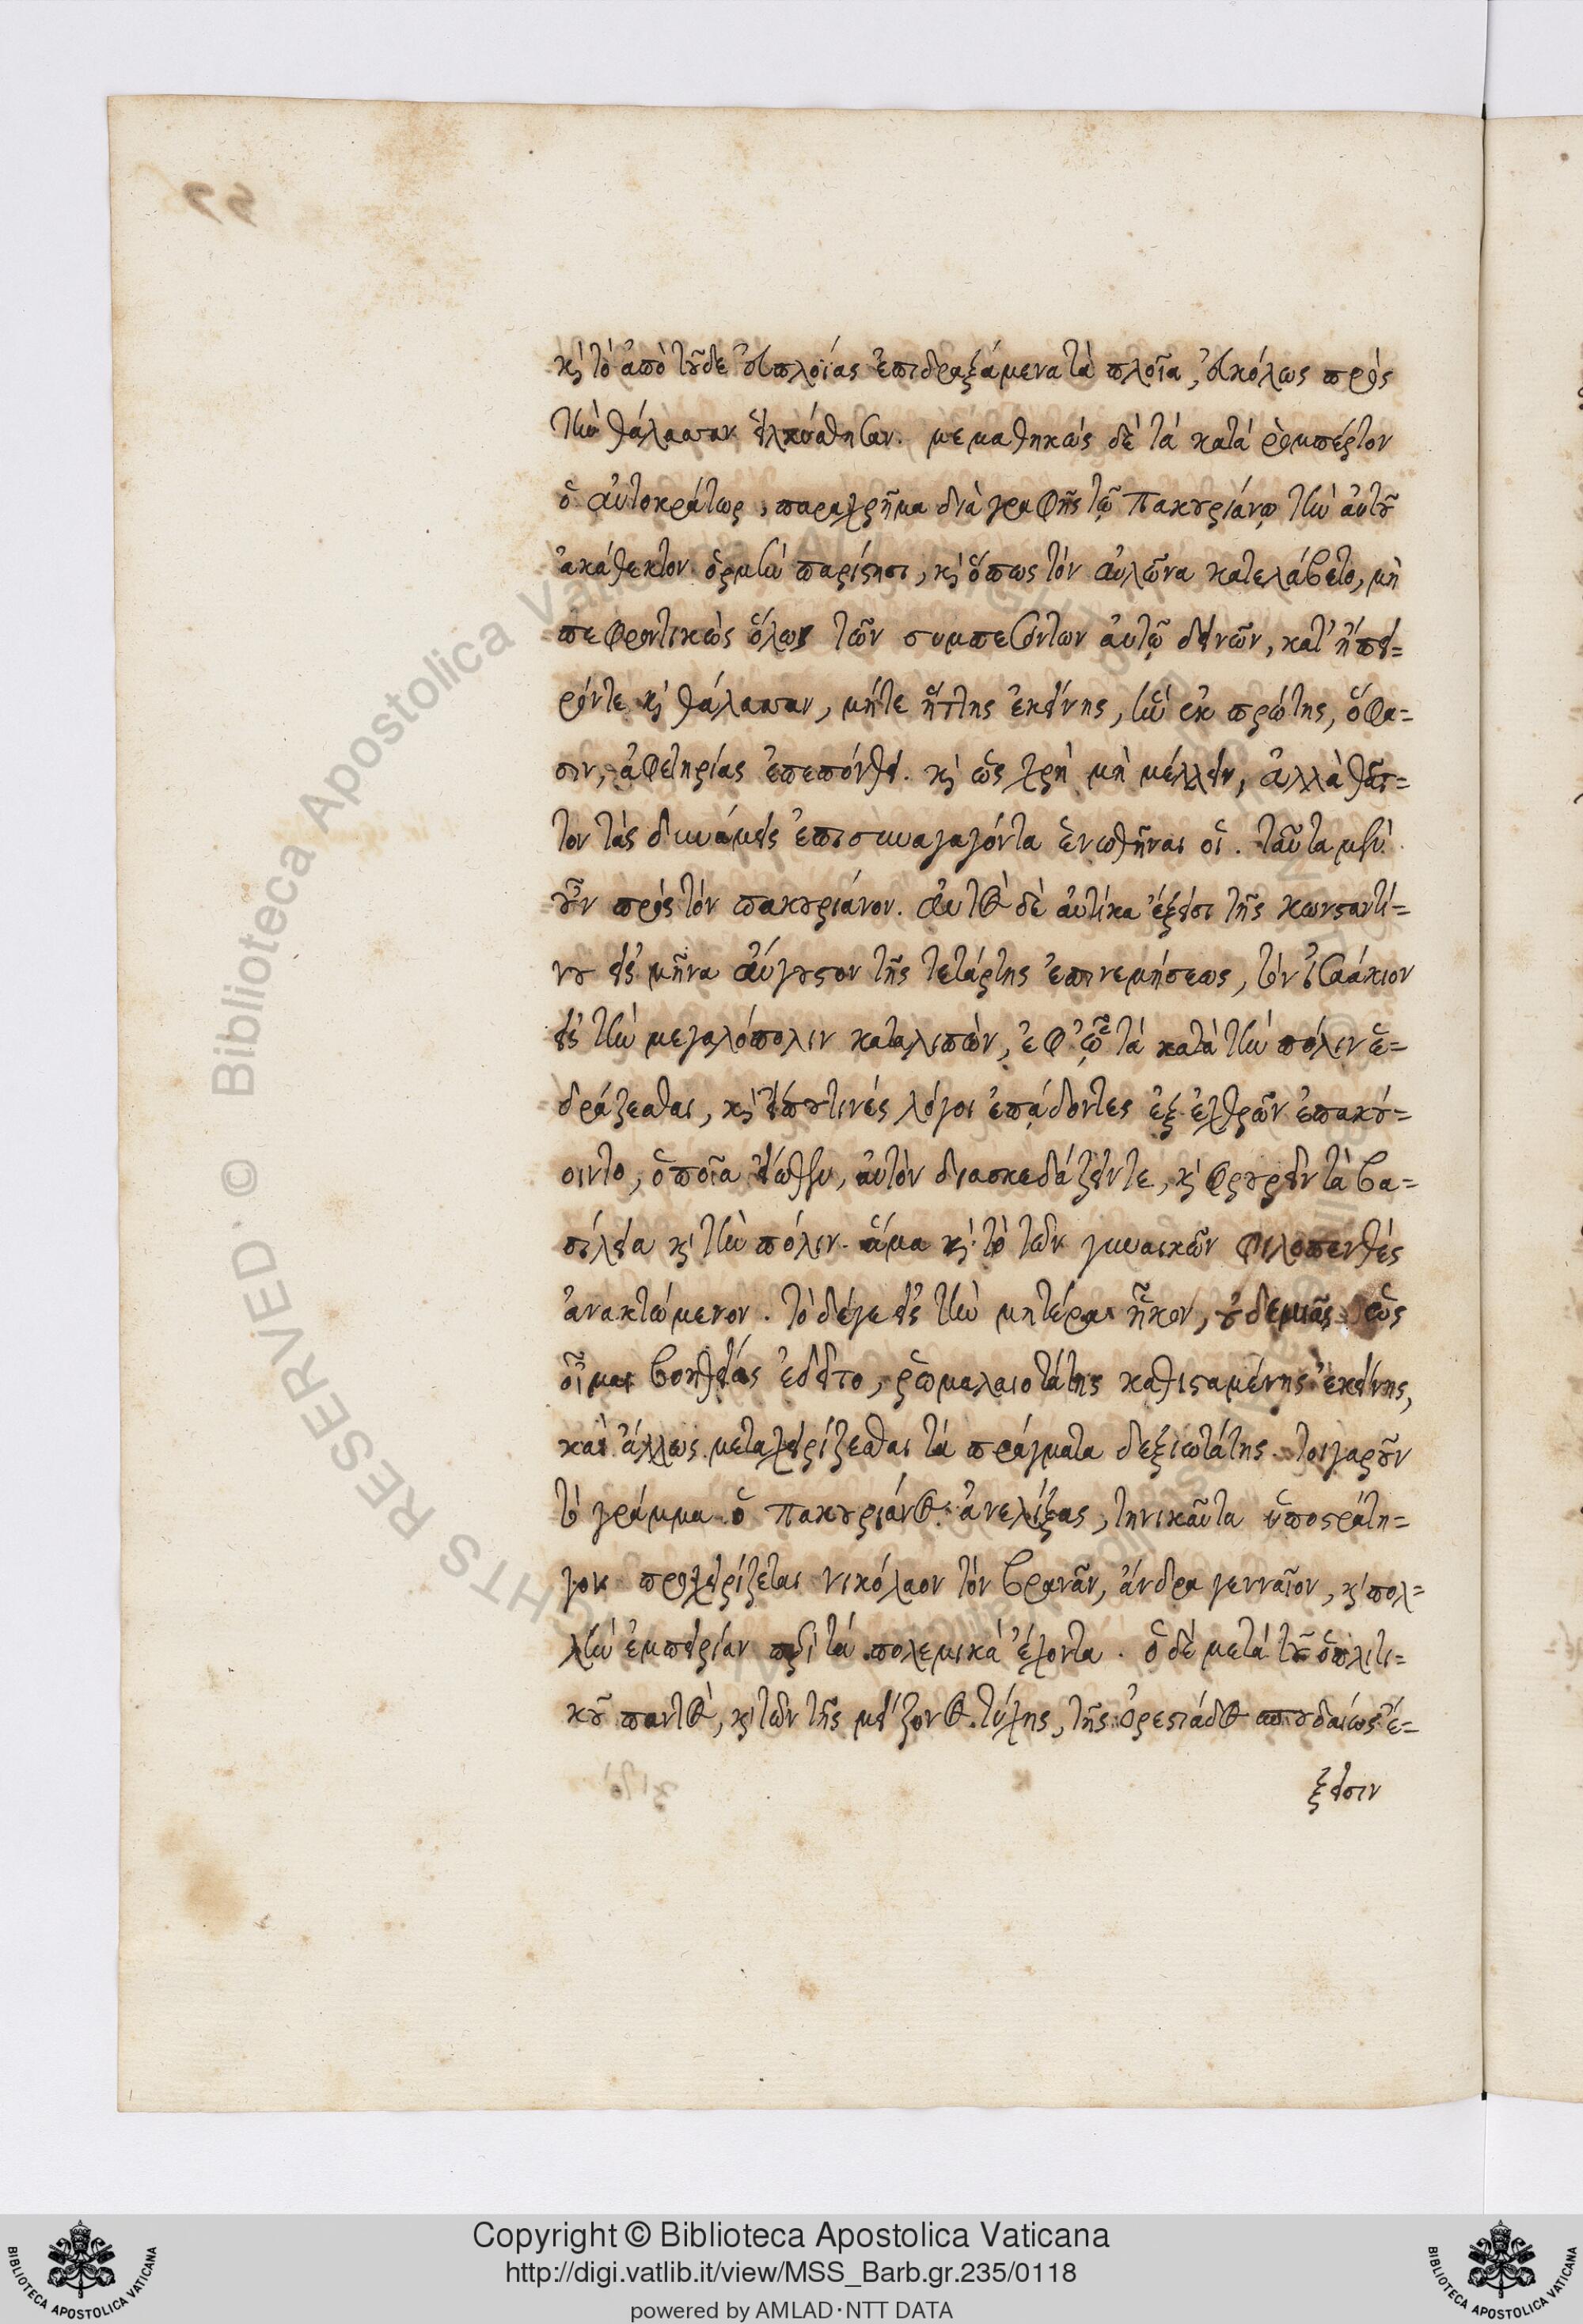 καὶ τὸ ἀπὸ τοῦδε εὐπλοΐας ἐπιδραξάμενα τὰ πλοῖα, εὐκόλως πρὸς
τὴν θάλασσαν εἱλκύσθησαν. μεμαθηκὼς δὲ τὰ κατὰ ῥομπέρτον
ὁ αὐτοκράτωρ, παραχρῆμα διὰ γραφῆς τῷ Πακουριάνῳ τὴν αὐτοῦ
ἀκάθεκτον ὁρμὴν παρίστησι, καὶ ὅπως τὸν αὐλῶνα κατελάβετο, μὴ
πεφροντικὼς ὅλως τῶν συμπεσόντων αὐτῷ δεινῶν, κατ' ἤπει-
ρόν τε καὶ θάλασσαν, μήτε ἥττης ἐκείνης, ἣν ἐκ πρώτης, ὅ φα-
σιν, ἀφετηρίας ἐπεπόνθει. καὶ ὡς χρὴ μὴ μέλλειν, ἀλλὰ θᾶτ-
τον τὰς δυνάμεις ἐπισυναγαγόντα ἑνωθῆναι οἱ. ταῦτα μὲν
οὖν πρὸς τὸν πακουριάνον. αὐτὸς δὲ αὐτίκα ἔξεισι τῆς κωνσταντί-
νου εἰς μῆνα αὔγουστον τῆς τετάρτης ἐπινεμήσεως, τὸν ἰσαάκιον
εἰς τὴν μεγαλόπολιν καταλιπὼν, ἐφ' ᾧ τὰ κατὰ τὴν πόλιν ἑ-
δράζεσθαι, καὶ εἴπου τινὲς λόγοι ἐπᾴδοντες ἐξ ἐχθρῶν ἐπακού-
οιντο, ὁποῖα εἴωθεν, αὐτὸν διασκεδάζειν τε, καὶ φρουρεῖν τὰ βα-
σίλεια καὶ τὴν πόλιν. ἅμα καὶ τὸ τῶν γυναικῶν φιλοπενθὲς
ἀνακτώμενον. τὸ δέ γε εἰς τὴν μητέρα ἧκον, οὐδεμιᾶς ὡς
οἶμαι βοηθείας ἐδεῖτο, ῥωμαλαιοτάτης καθισταμένης ἐκείνης,
καὶ ἄλλως μεταχειρίζεσθαι τὰ πράγματα δεξιωτάτης. τοιγαροῦν
τὸ γράμμα ὁ Πακουριάνος ἀνελίξας, τηνικαῦτα ὑποστράτη-
γον προχειρίζεται νικόλαον τὸν βρανᾶν, ἄνδρα γενναῖον, καὶ πολ-
λὴν ἐμπειρίαν περὶ τὰ πολεμικὰ ἔχοντα. ὁ δὲ μετὰ τοῦ ὁπλιτι-
κοῦ παντὸς, καὶ τῶν τῆς μείζονος τύχης, τῆς ὀρεστιάδος σπουδαίως ἔ-
ξεισιν
Copyright © Biblioteca Apostolica Vaticana
http://digi.vatlib.it/view/MSS_Barb.gr.235/0118
powered by AMLAD·NTT DATA